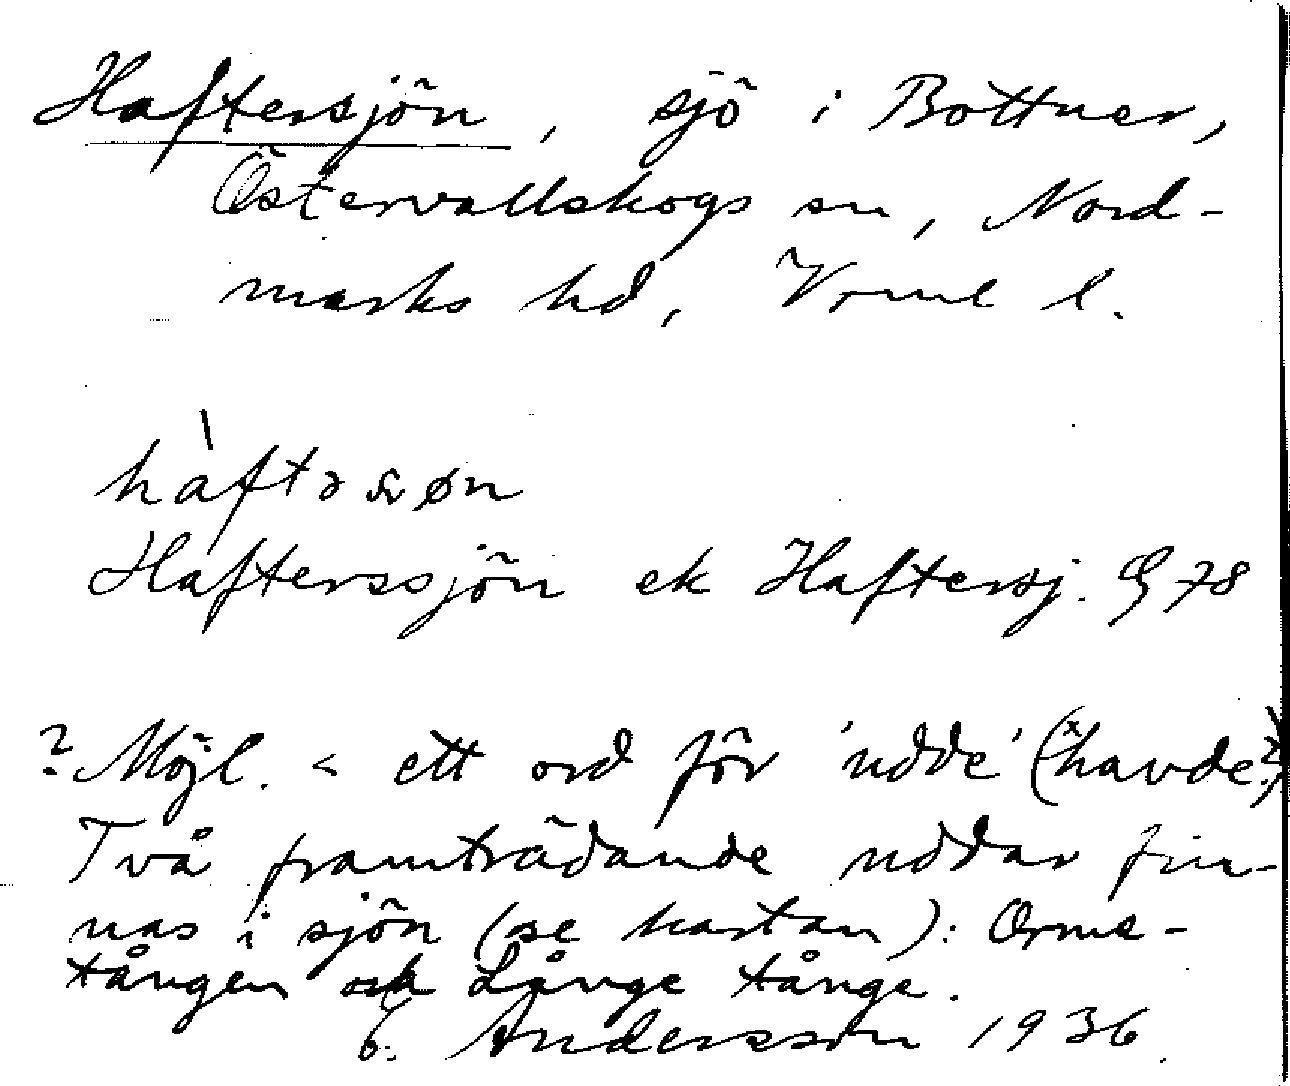 Haftersjön, sjö i Bottner,
Östervallskogs sn, Nord-
marks hd, Vrml l.
Hafterssjön ek Haftersj. G 78
? Möjl. < ett ord för 'udde' (*havde?)
Två framträdande uddar fin-
nas i sjön (se kartan): Orme-
tången och Långe tånge.
E. Andersson 1936